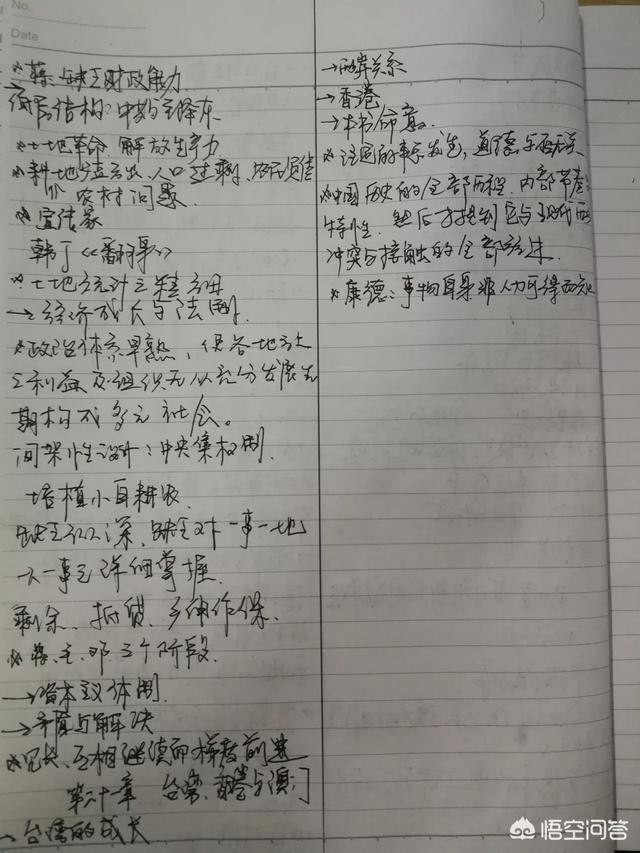 No.
Date
* 蒋:缺乏财政能力
低层结构:中数毛泽东
* 土地革命,解放生产力
* 耕地短立, 人口过剩,
农村问题
* 宣传家
韩丁《翻身》
* 土地统计
→ 经济成长与法制
* 政治体系早熟, 使各地方
之利益及组织无从充分发展先
期构成多元社会。
间架性设计:中央集权制
培植小自耕农
缺乏纵深, 缺乏对一事一地
一人一事之详细掌握
剩余、抵货、多伸作保
* 蒋、毛、邓三个阶段
→ 资本主义体制
→ 矛盾与解决
* 冗长、互相继续而梯度前进
第二十章 台湾、香港与澳门
→ 台湾的成长
→ 两岸关系
→ 香港
→ 本书命意
* 注定的事必发生, 道德与否无关
* 中国历史的全部历程, 内部节奏
特性, 然后才提到它与现代西
冲突与接触的全部经过
* 康德:事物自身非人力可得而知
悟空问答